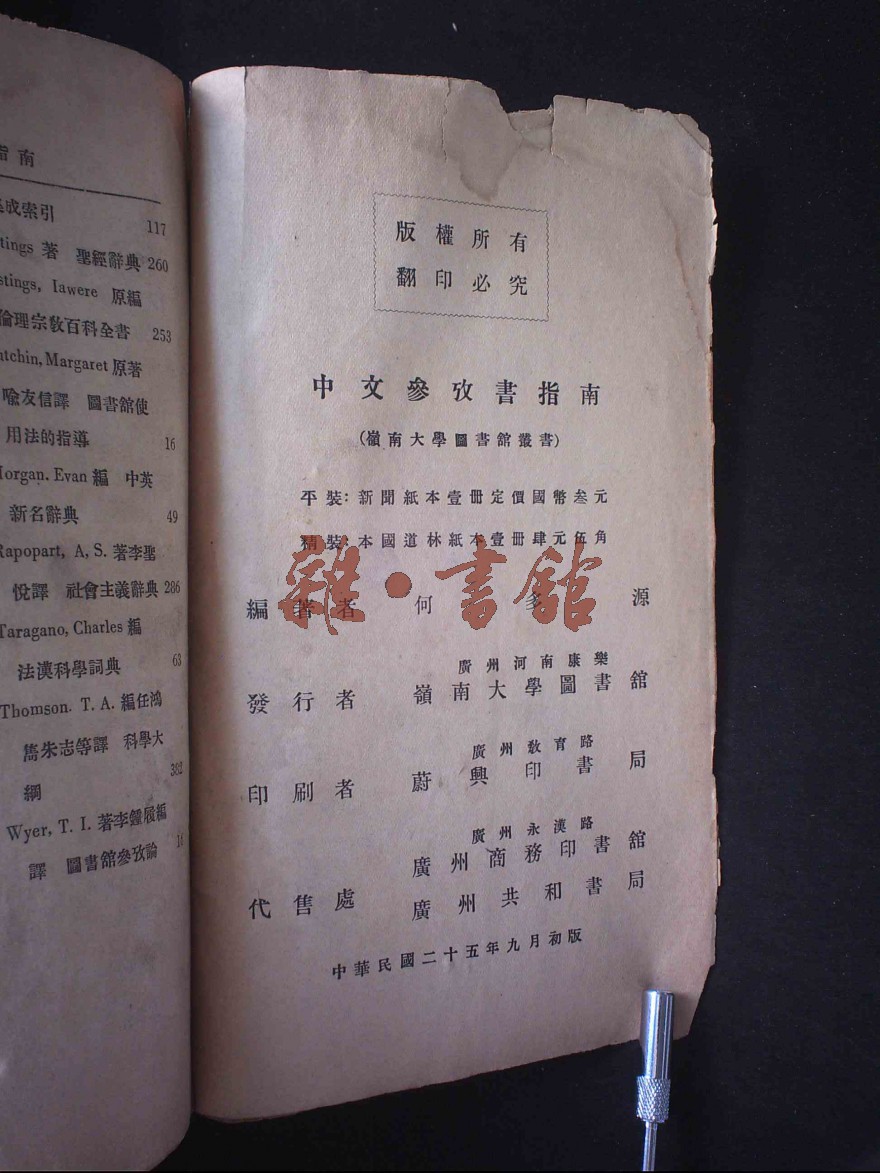 指南
成索引 117
tings 著 聖經辭典 260
stings, Iawere 原編
倫理宗敎百科全書 253
tchin, Margaret 原著
喩友信譯 圖書舘使
用法的指導 16
Morgan. Evan 編 中英
新名辭典 49
Rapopart, A, S. 著李聖
悅譯 社會主義辭典 286
Taragano, Charles 編
法漢科學詞典 63
Thomson. T. A. 編任鴻
雋朱志等譯 科學大
綱 382
Wyer, T. I. 著李鍾履編
譯 圖書舘參攷論
版權所有
翻印必究
中文參攷書指南
(嶺南大學圖書舘叢書)
平裝:新聞紙本壹册定價國幣叁元
精裝:本國道林紙本壹册肆元伍角
雜·書舘
編著者 何多源
廣州河南康樂
發行者 嶺南大學圖書舘
廣州敎育路
印刷者 蔚興印書局
廣州永漢路
廣州商務印書舘
代售處
廣州共和書局
中華民國二十五年九月初版